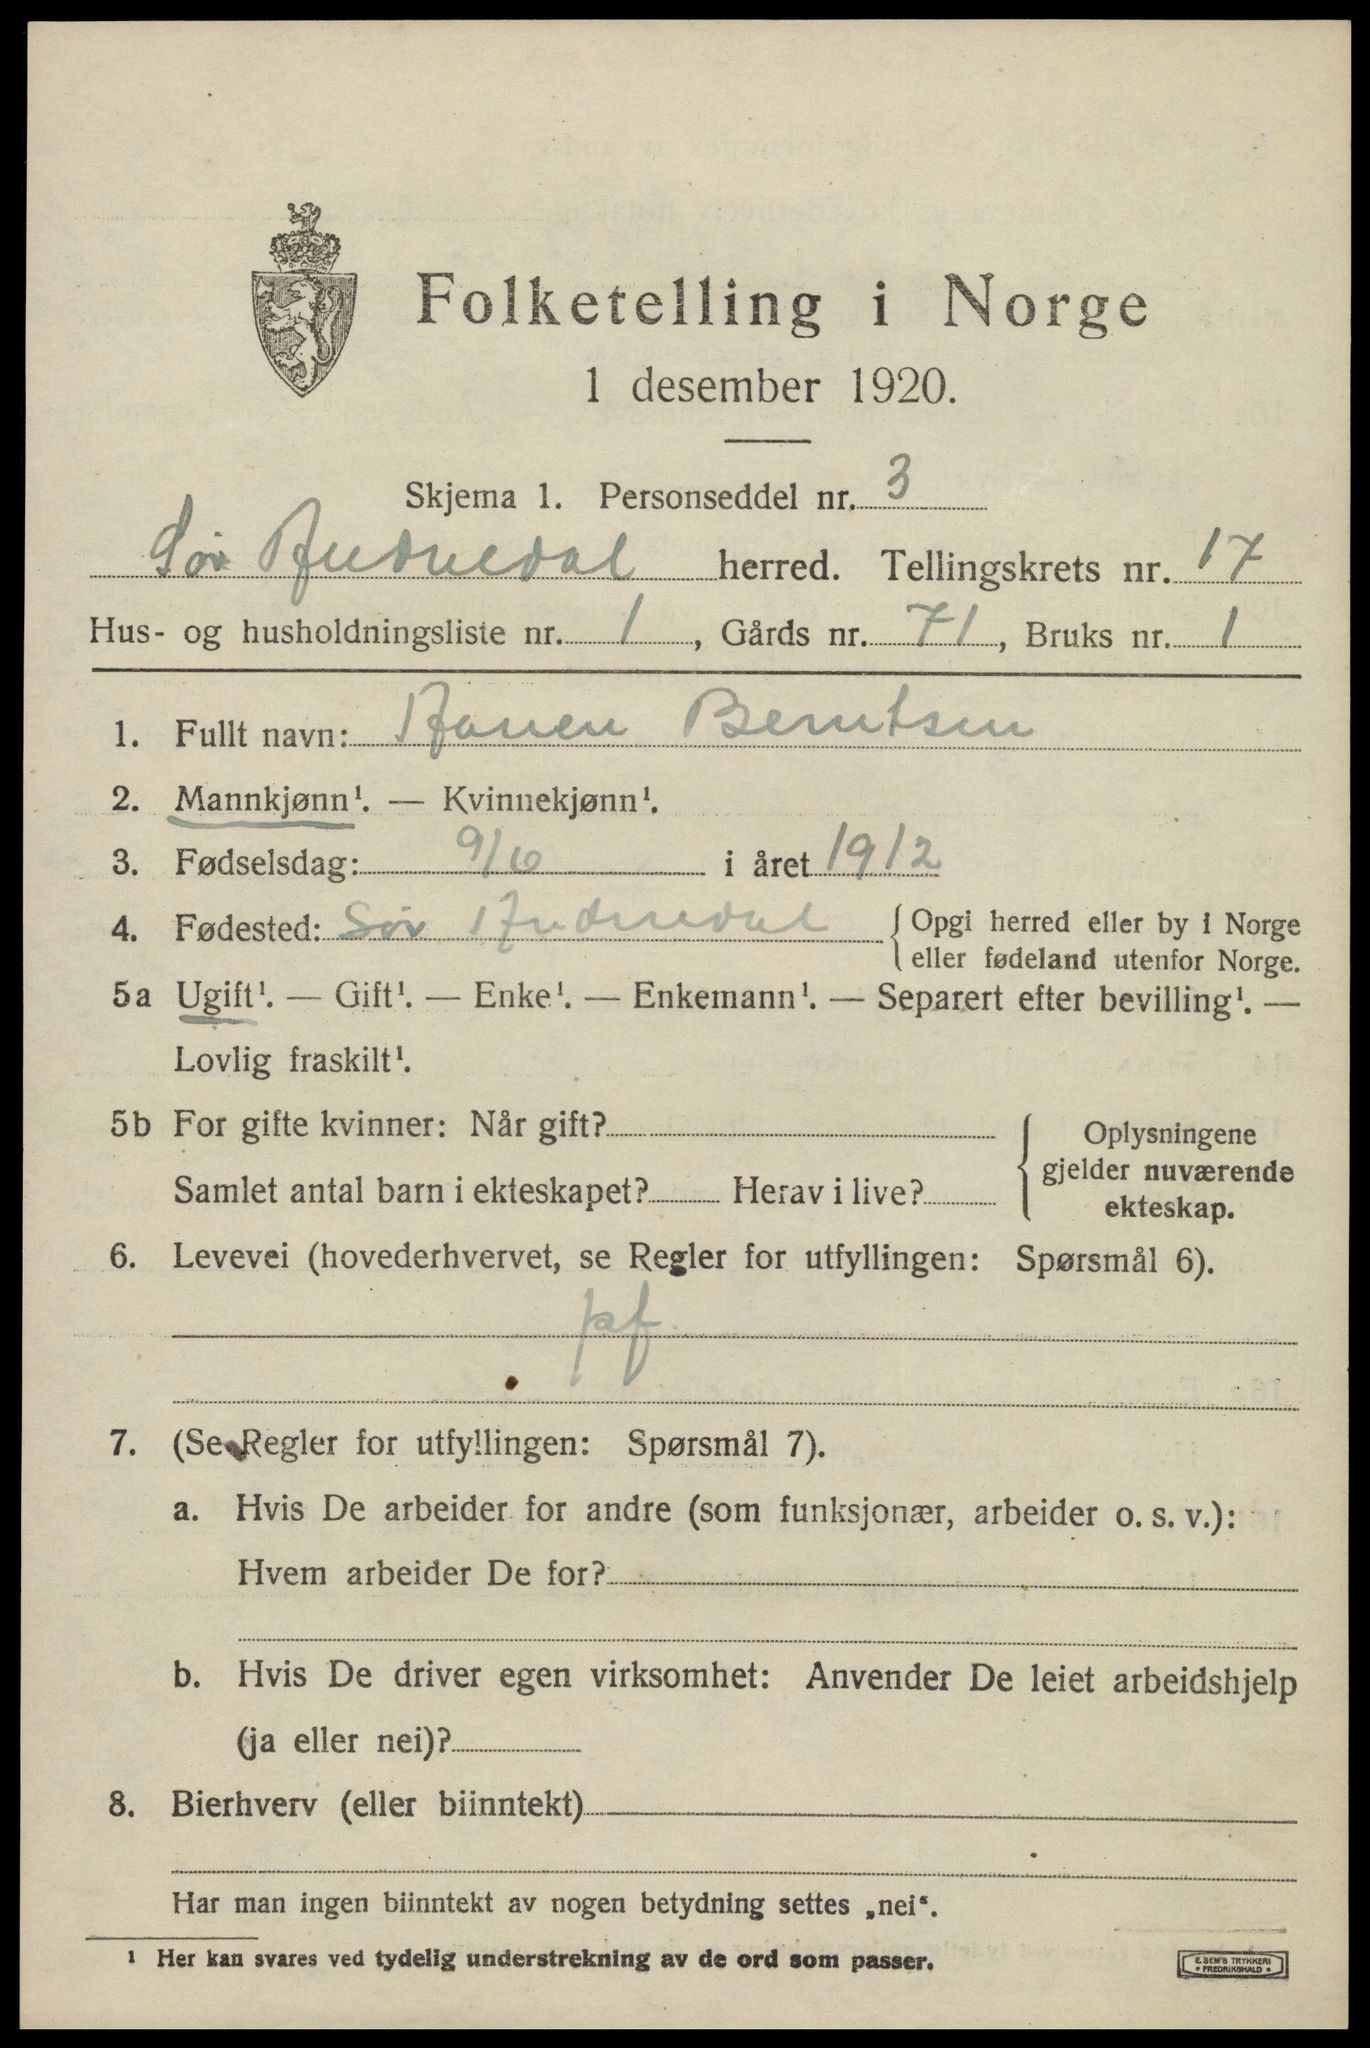 Folketelling i Norge
1 desember 1920.
Skjema 1. Personseddel nr. 3
Sør Audnedal herred. Tellingskrets nr. 17
Hus- og husholdningsliste nr. 1, Gårds nr. 71, Bruks nr. 1
1. Fullt navn: Berntsen
2. Mannkjønn¹. — Kvinnekjønn¹.
3. Fødselsdag: 9/6 i året 1912
4. Fødested: Sør Audnedal { Opgi herred eller by i Norge
eller fødeland utenfor Norge.
5a Ugift¹. — Gift¹. — Enke¹. — Enkemann¹. — Separert efter bevilling¹. —
Lovlig fraskilt¹.
5b For gifte kvinner: Når gift?
Samlet antal barn i ekteskapet? Herav i live?
{ Oplysningene
gjelder nuværende
ekteskap.
6. Levevei (hovederhvervet, se Regler for utfyllingen: Spørsmål 6).
pf.
7. (Se Regler for utfyllingen: Spørsmål 7).
a. Hvis De arbeider for andre (som funksjonær, arbeider o. s. v.):
Hvem arbeider De for?
b. Hvis De driver egen virksomhet: Anvender De leiet arbeidshjelp
(ja eller nei)?
8. Bierhverv (eller biinntekt)
Har man ingen biinntekt av nogen betydning settes „nei“.
¹ Her kan svares ved tydelig understrekning av de ord som passer.
E. SEM'S TRYKKERI
• FREDRIKSHALD •